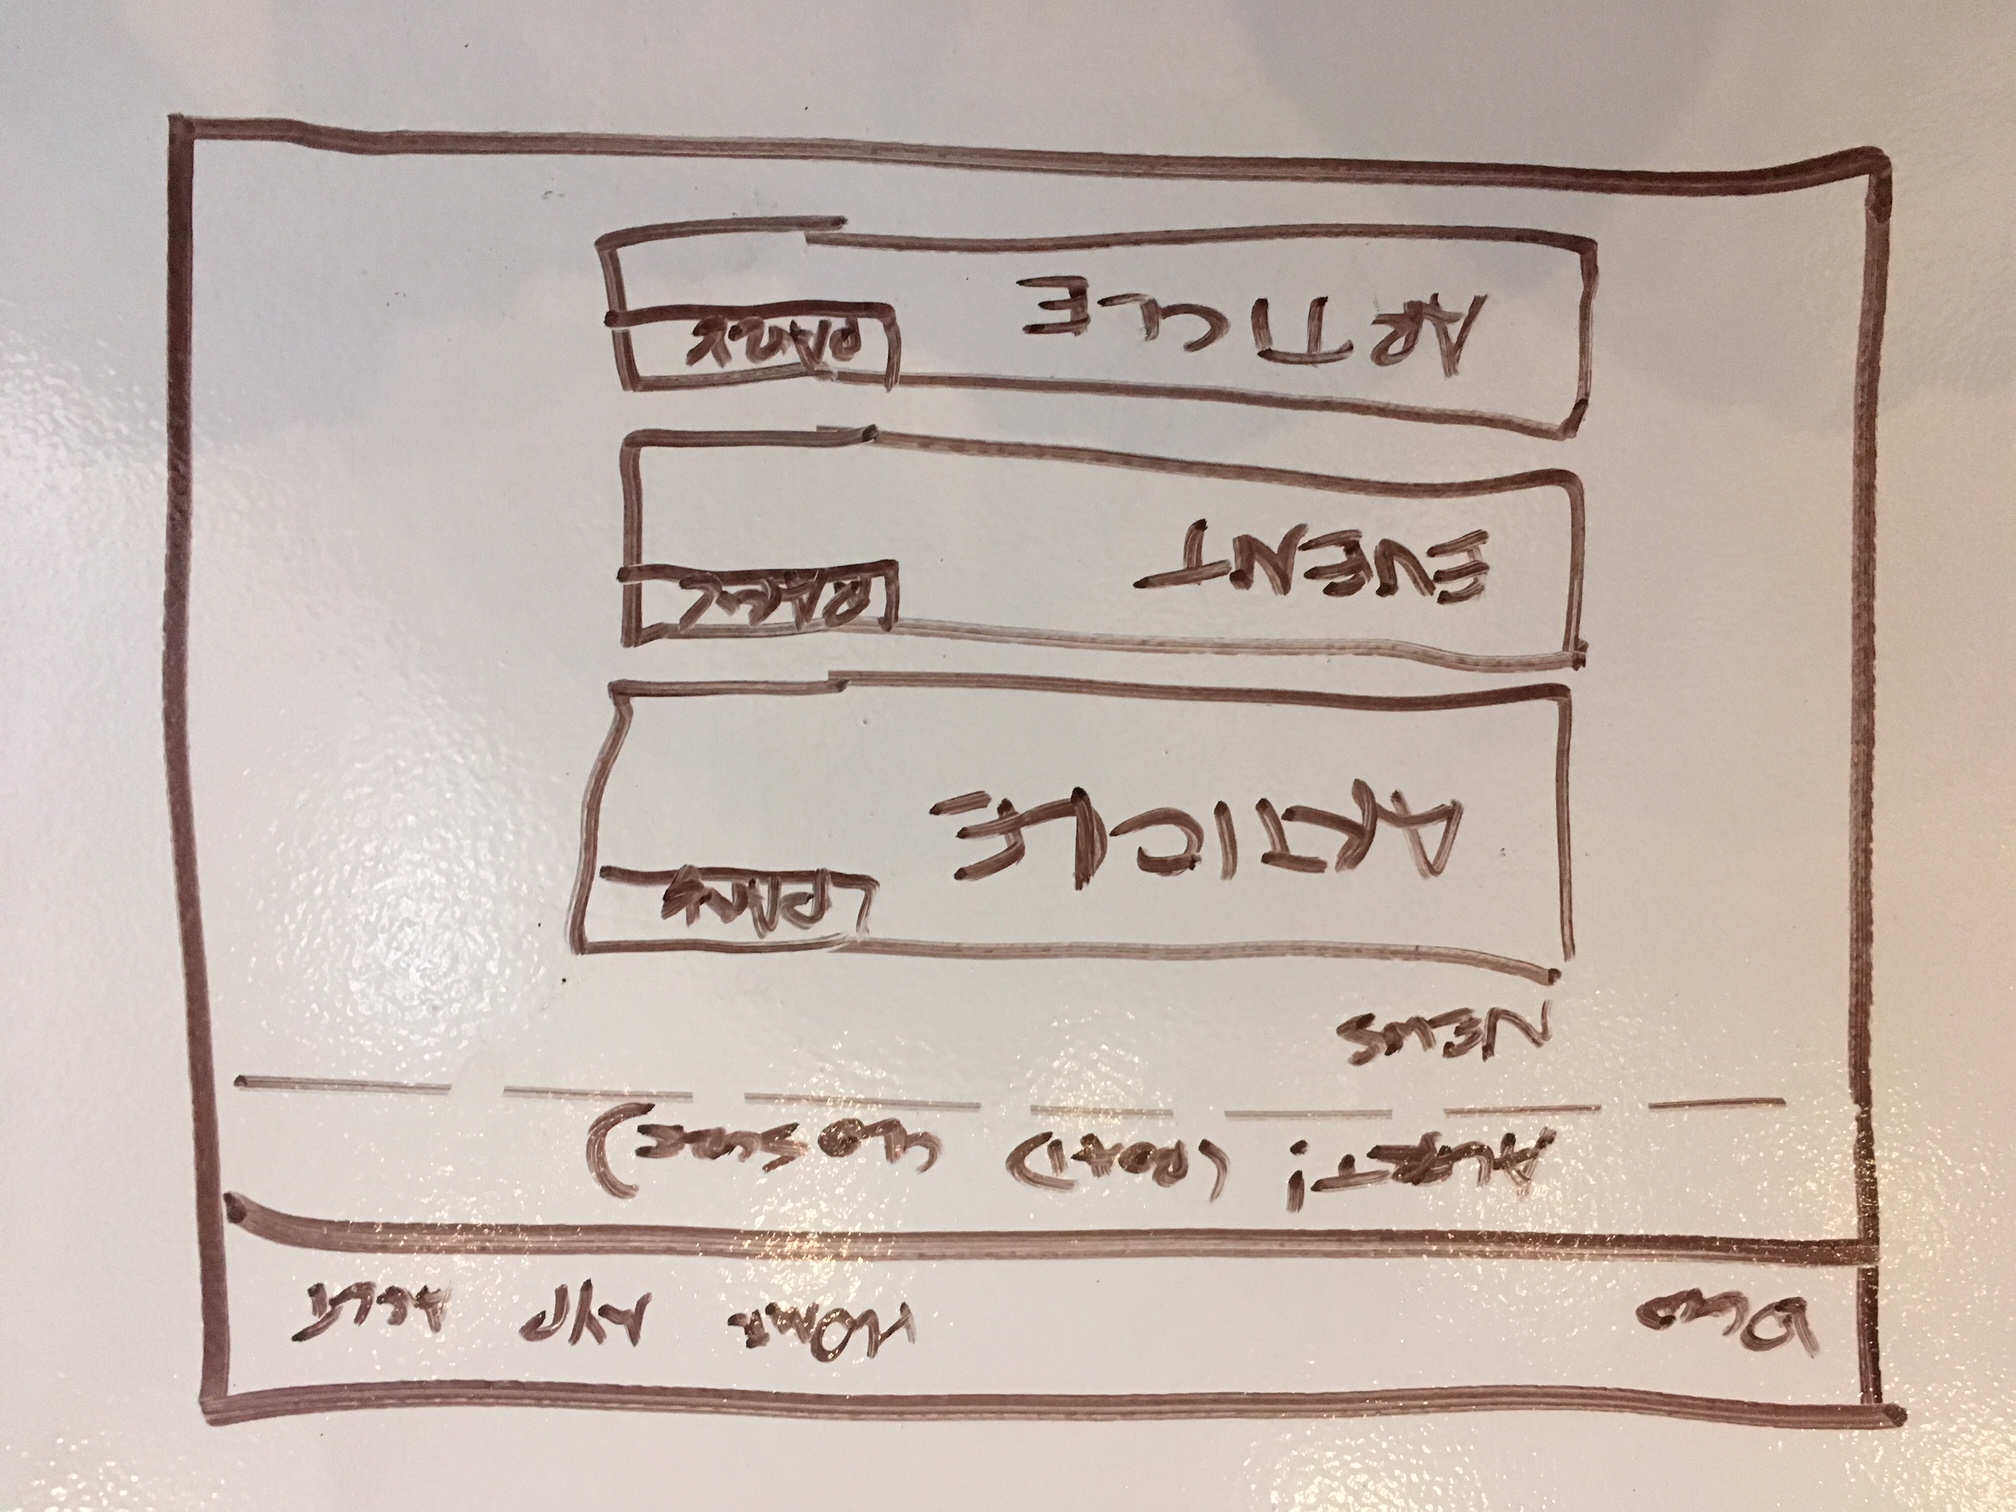 LOGO HOME MYP ACCT
ALERT! (ROAD CLOSURE)
NEWS
PARK
ARTICLE
PARK
EVENT
PARK
ARTICLE